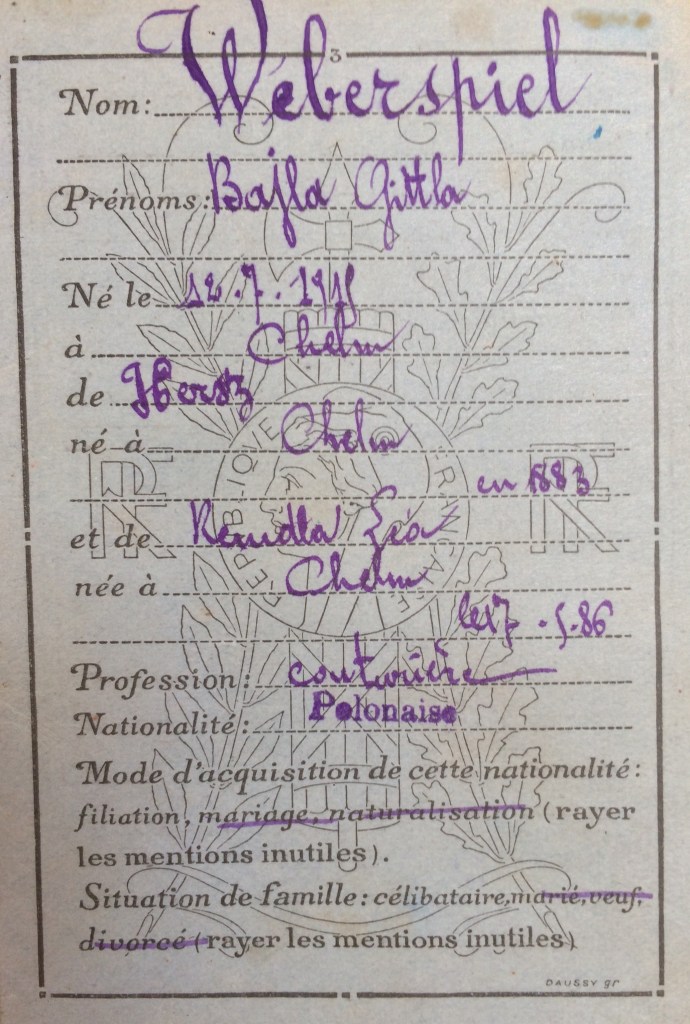 3
Nom: Weberspiel
Prénoms: Bajla Gittla
Né le 12.7.1915
à Chelm
de Hersz
né à Chelm
en 1883
et de
née à Chelm
le 17.5.86
Profession: couturière
Nationalité: Polonaise
Mode d'acquisition de cette nationalité:
filiation, mariage, naturalisation (rayer
les mentions inutiles).
Situation de famille: célibataire, marié, veuf,
divorcé (rayer les mentions inutiles)
RÉPUBLIQUE FRANÇAISE
RF
RF
DAUSSY gr